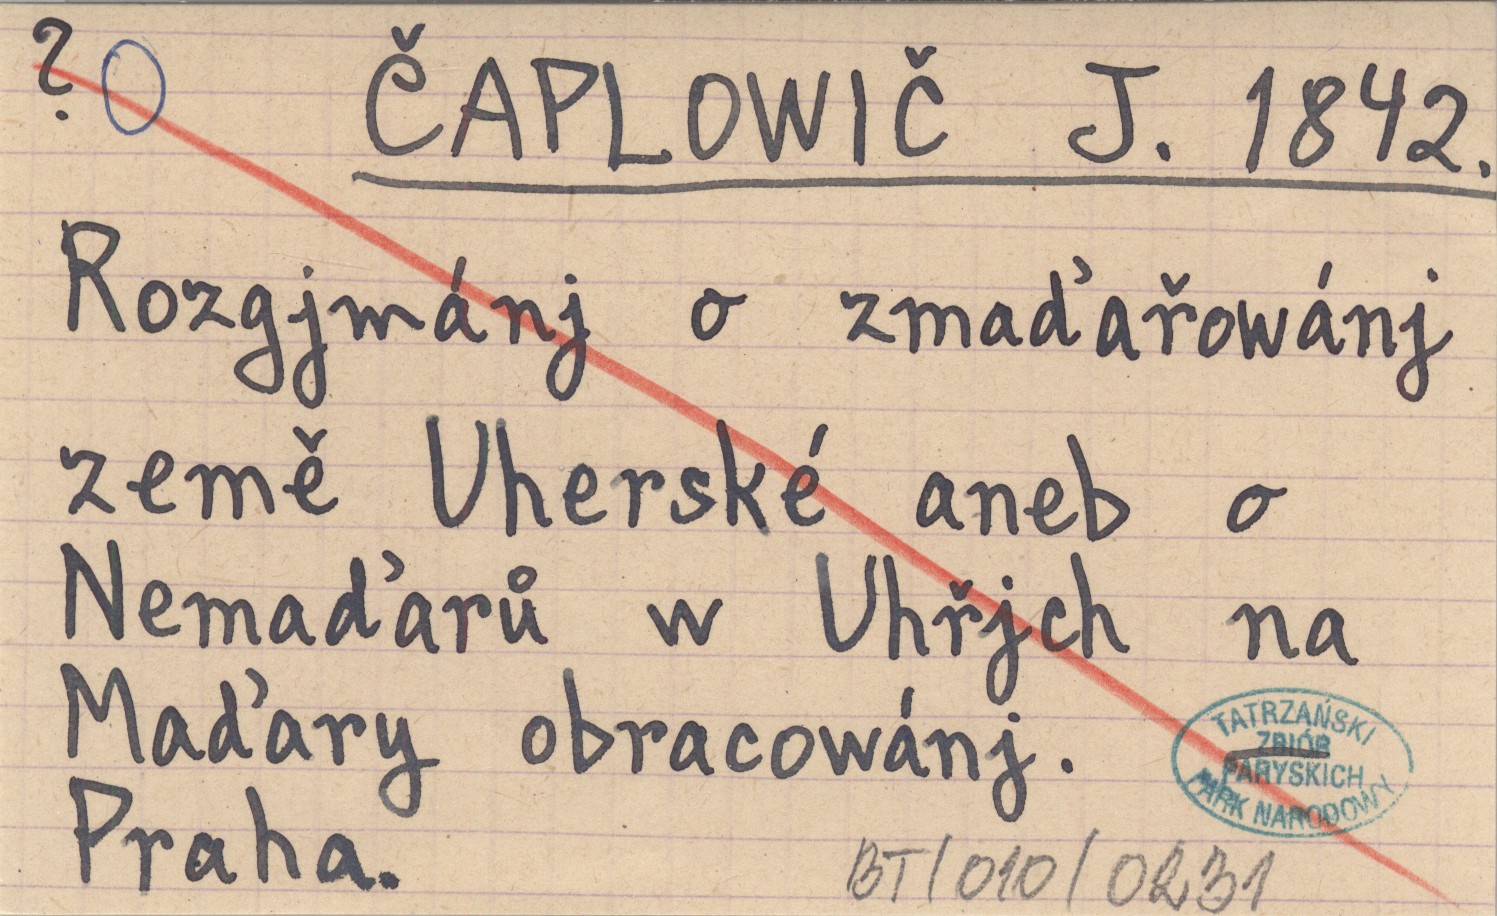 ? O ČAPLOWIČ J. 1842.
Rozgjmánj o zmaďařowánj
země Uherské aneb o
Nemaďarů w Uhřjch na
Maďary obracowánj.
Praha.
TATRZAŃSKI
ZBIÓR
PARYSKICH
PARK NARODOWY
BT/010/0231